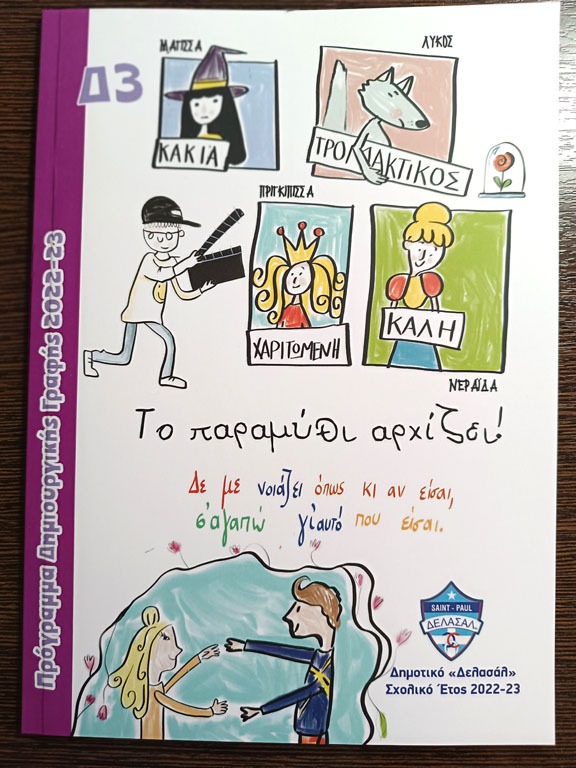 Δ3
Πρόγραμμα Δημιουργικής Γραφής 2022-23
ΜΑΓΙΣΣΑ
ΚΑΚΙΑ
ΛΥΚΟΣ
ΤΡΟΜΑΚΤΙΚΟΣ
ΠΡΙΓΚΙΠΙΣΣΑ
ΧΑΡΙΤΩΜΕΝΗ
ΚΑΛΗ
ΝΕΡΑΪΔΑ
Το παραμύθι αρχίζει!
Δε με νοιάζει όπως κι αν είσαι,
σ'αγαπώ γι'αυτό που είσαι.
SAINT - PAUL
ΔΕΛΑΣΑΛ
Δημοτικό «Δελασάλ»
Σχολικό Έτος 2022-23